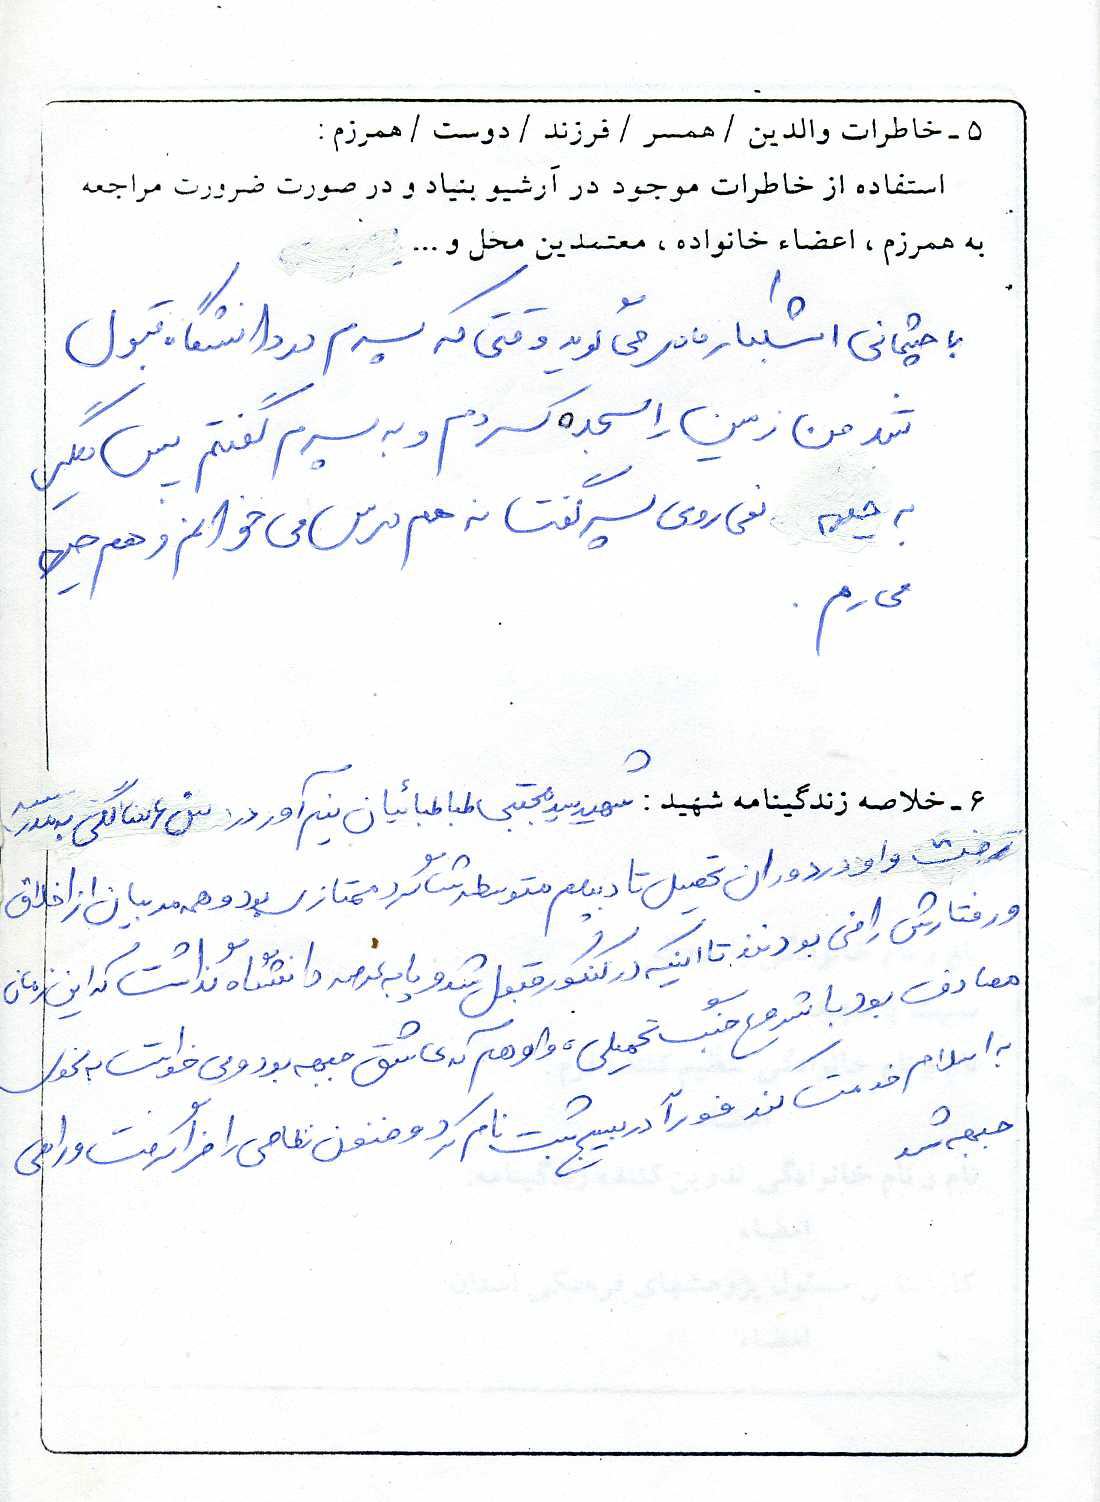 ۵ ـ خاطرات والدین / همسر / فرزند / دوست / همرزم :
استفاده از خاطرات موجود در آرشیو بنیاد و در صورت ضرورت مراجعه
به همرزم ، اعضاء خانواده ، معتمدین محل و ...
با چشمانی اشکبار مادر می گوید وقتی که پسرم در دانشگاه قبول
شد من زمین را سجده کردم و به پسرم گفتم پس دیگر
به جبهه نمی روی پسر گفت نه هم درس می خوانم و هم جبهه
می رم .
۶ ـ خلاصه زندگینامه شهید : شهید سید مجتبی طباطبائیان نیم آور در سن ۶ سالگی به مدرسه
رفت و او در دوران تحصیل تا دیپلم متوسطه شاگرد ممتازی بود و همه مربیان از اخلاق
و رفتارش راضی بودند تا اینکه در کنکور قبول شد و پا به عرصه دانشگاه گذاشت که این زمان
مصادف بود با شروع جنگ تحمیلی ، و او هم که عاشق جبهه بود و می خواست به نحوی
به اسلام خدمت کند فوراً در بسیج ثبت نام کرد و فنون نظامی را فرا گرفت و راهی
جبهه شد